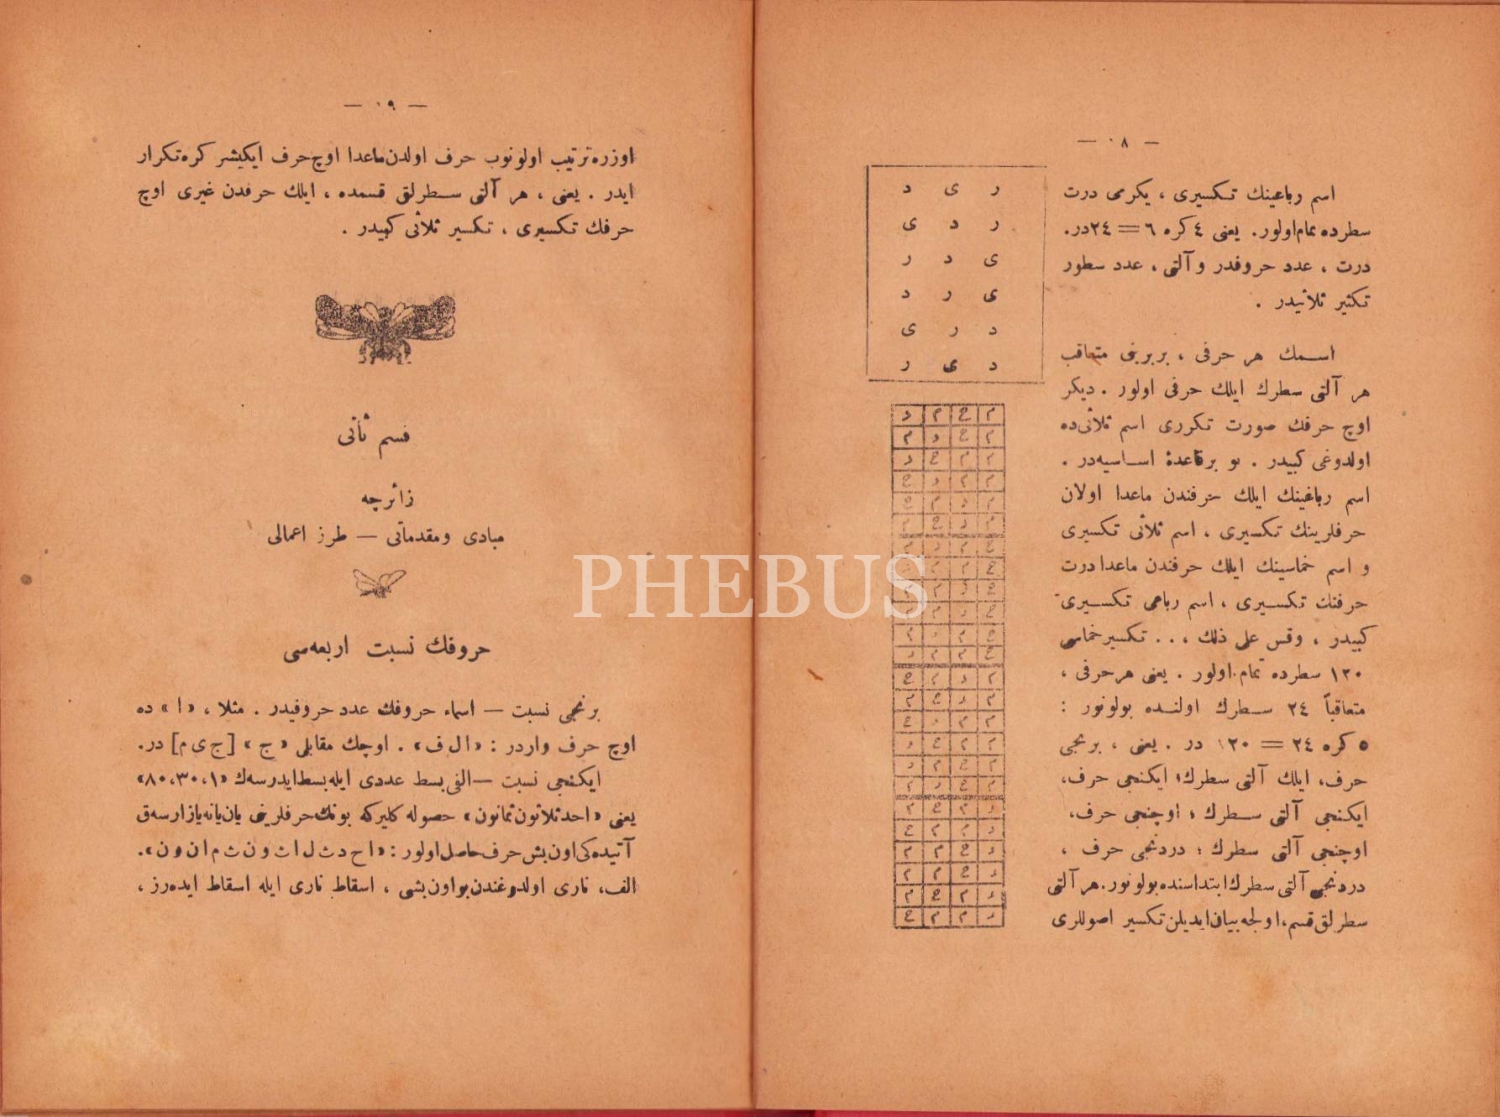 — ٠٨ —
اسم رباعینك تكسیری ، یكرمی درت
سطرده تمام اولور. یعنی ٤ كره ٦ = ٢٤ در.
درت ، عدد حروفدر و آلتی ، عدد سطور
تكثیر ثلاثیدر .
ر ی د
ر د ی
ی د ر
ی ر د
د ر ی
د ی ر
اسمك هر حرفی ، بربرینی متعاقب
هر آلتی سطرك ایلك حرفی اولور . دیكر
اوچ حرفك صورت تكرری اسم ثلاثی ده
اولدوغی كبیدر . بو بر قاعدهٔ اساسیه در .
اسم رباغینك ایلك حرفندن ماعدا اولان
حرفلرینك تكسیری ، اسم ثلاثی تكسیری
و اسم خماسینك ایلك حرفندن ماعدا درت
حرفنك تكسیری ، اسم رباعی تكسیری
كبیدر ، وقس علی ذلك ، . . تكسیر خماسی
١٢٠ سطرده تمام اولور . یعنی هر حرفی ،
متعاقباً ٢٤ سطرك اولنده بولونور :
٥ كره ٢٤ = ١٢٠ در . یعنی ، برنجی
حرف، ایلك آلتی سطرك؛ ایكنجی حرف،
ایكنجی آلتی سطرك ؛ اوچنجی حرف،
اوچنجی آلتی سطرك ؛ دردنجی حرف ،
دردنجی آلتی سطرك ابتداسنده بولونور. هر آلتی
سطرلق قسم، اولجه بیان ایدیلن تكسیر اصوللری
— ٠٩ —
اوزره ترتیب اولونوب حرف اولدن ماعدا اوچ حرف ایكیشر كره تكرار
ایدر . یعنی ، هر آلتی سطرلق قسمده ، ایلك حرفدن غیری اوچ
حرفك تكسیری ، تكسیر ثلاثی كبیدر .
قسم ثانی
زائرچه
مبادی و مقدماتی — طرز اعمالی
حروفك نسبت اربعه سی
برنجی نسبت — اسماء حروفك عدد حروفیدر . مثلا ، «ا» ده
اوچ حرف واردر : «ا ل ف» . اوچك مقابلی «ج» [ج ی م] در.
ایكنجی نسبت — الفی بسط عددی ایله بسط ایدرسه ك «١،٣٠،٨٠»
یعنی «احد ثلاثون ثمانون» حصوله كلیركه بونك حرفلرینی یان یانه یازارسه ق
آتیده كی اون بش حرف حاصل اولور : «ا ح د ث ل ا ث و ن ث م ا ن و ن».
الف، ناری اولدوغندن بو اون بشی ، اسقاط ناری ایله اسقاط ایده رز ،
PHEBUS